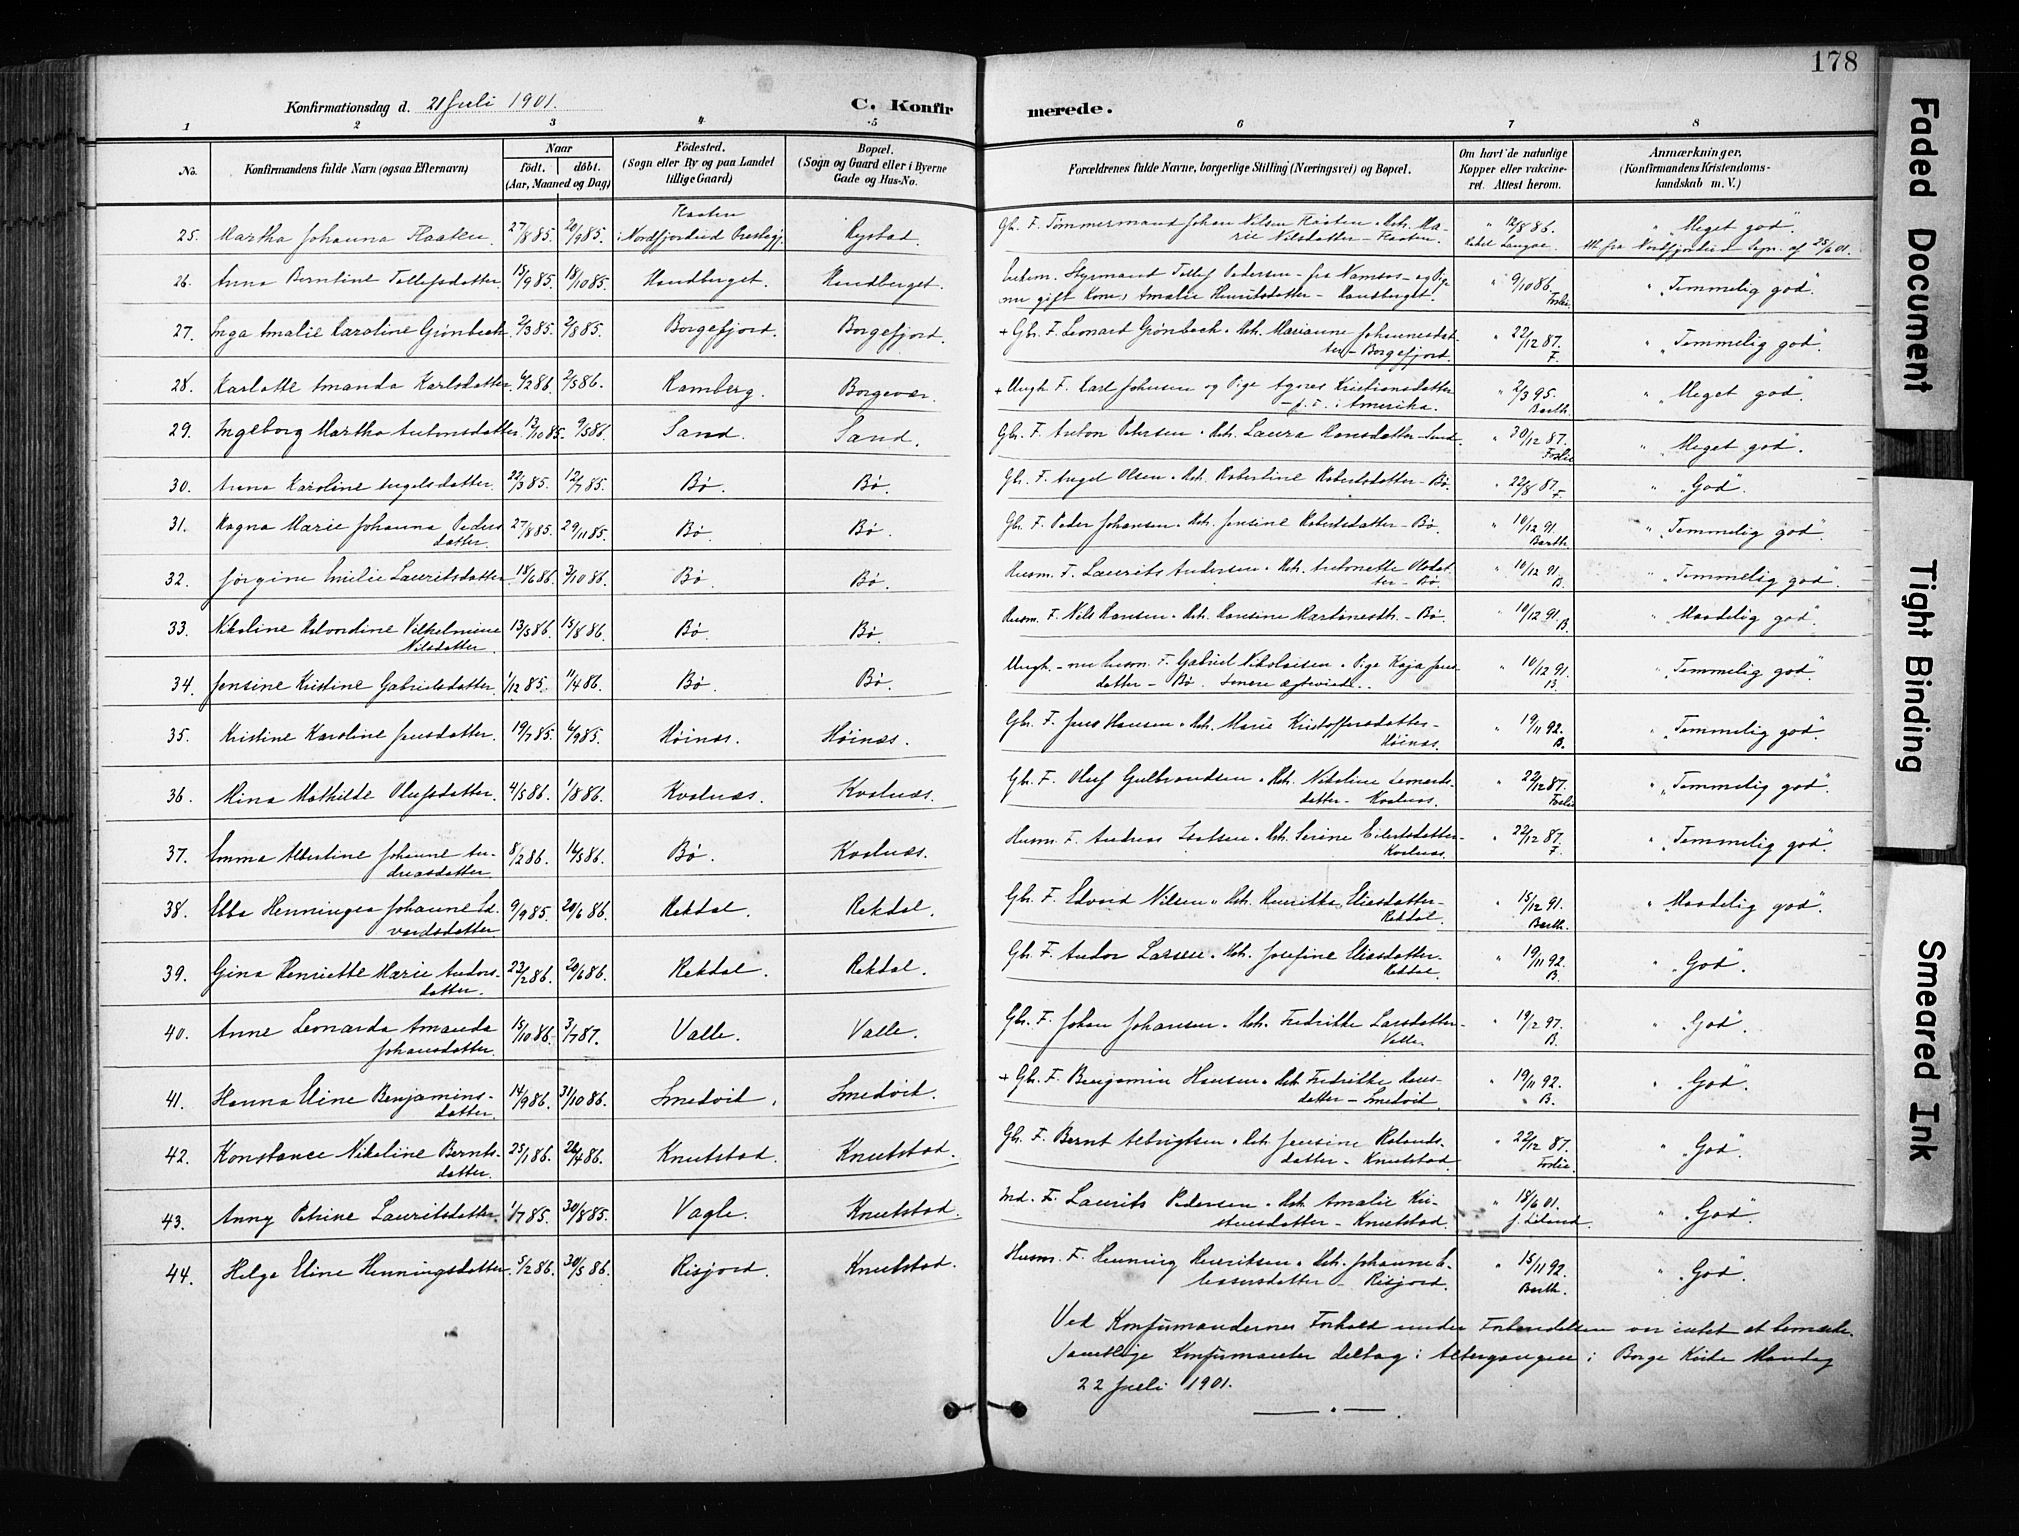 178
Konfirmationsdag d. 21 Juli 1901.
C. Konfirmerede.
1 2 3 4 5 6 7 8
No.
Konfirmandens fulde Navn (ogsaa Efternavn)
Naar
født. døbt.
(Aar, Maaned og Dag)
Fødested.
(Sogn eller By og paa Landet
tillige Gaard)
Bopæl.
(Sogn og Gaard eller i Byerne
Gade og Hus-No.
Forældrenes fulde Navne, borgerlige Stilling (Næringsvei) og Bopæl.
Om havt de naturlige
Kopper eller vakcine-
ret. Attest herom.
Anmærkninger.
(Konfirmandens Kristendoms-
kundskab m. V.)
25. Martha Johanna Flaaten 27/8 85. 20/9 85. Flaaten i Nordfjordeid Prestegj. Rystad. Gb. F. Tømmermand Johan Nilsen Flaaten Ma-
rie Nilsdatter - Flaaten. " 12/8 86. "Meget god".
fra Nordfjordeid Sogn af 25/6 01.
26. Anna Berntine Tollefsdatter. 15/9 85. 18/10 85. Handberget. Handberget. Styrmand Tollef Pedersen - fra Namsos - og Pige
nu gift Kone, Amalie Henriksdatter - " 9/10 86. "Temmelig god".
27. Inga Amalie Karoline Grønbech 2/3 85. 2/8 85. Borgefjord. Borgefjord. + Gbr. F. Leonard Grønbech Marianne Johannesdat-
ter - Borgefjord. " 22/12 87. F. "Temmelig god".
28. Karlotte Amanda Karlsdatter. 6/2 86. 2/5 86. Ramberg. Borgevær. + Ungk. F. Karl Johnsen og Pige Agnes Kristiansdatter
- f. t. i Amerika. " 2/3 95. Barth. "Meget god".
29. Ingeborg Martha Antonsdatter 12/10 85. 9/5 86. Sand. Sand. Gbr. F. Anton Petersen Laura Hansdatter - Sand. " 30/12 87. "Meget god".
30. Anna Karoline Angelsdatter. 22/3 85. 12/7 85. Bø. Bø. Gbr. F. Angel Olsen Robertine Robertsdatter - Bø. " 22/8 87. F. "God".
31. Ragna Marie Johanna Peders
datter. 27/8 85. 29/11 85. Bø. Bø. Gbr. F. Peder Johansen Jensine Robertsdatter - Bø. " 10/12 91. Barth. "Temmelig god".
32. Jørgine Emilie Lauritsdatter. 18/6 86. 3/10 86. Bø. Bø. Husm. F. Laurits Andersen Antonette Olsdat-
ter - Bø. " 10/12 91. B. "Temmelig god".
33. Nikoline Vilhelmine
Nilsdatter. 13/5 86. 15/8 86. Bø. Bø. Husm. F. Nils Hansen Hansine - Bø. " 10/12 91. B. "Maadelig god".
34. Jensine Kristine Gabrielsdatter. 1/12 85. 11/4 86. Bø. Bø. Ungk. - nu husm. F. Gabriel Nikolaisen Pige Kaja Jens-
datter - Bø. Senere ægteviede. " 10/12 91. B. "Temmelig god".
35. Kristine Karoline Jensdatter. 19/7 85. 6/9 85. Høinæs. Høinæs. Gbr. F. Jens Hansen Marie Kristoffersdatter -
Høinæs. " 19/11 92. B. "Temmelig god".
36. Mina Mathilde Olufsdatter. 4/5 86. 1/8 86. Kvalnæs. Kvalnæs. Gbr. F. Oluf Gulbrandsen Nikoline Leonards-
datter - Kvalnæs. " 22/12 87. "Temmelig god".
37. Emma Albertine Johanne An-
dreasdatter. 8/2 86. 16/5 86. Bø. Kvalnæs. Husm. F. Andreas Isaksen Serine Eilertsdatter -
Kvalnæs. " 22/12 87. F. "Temmelig god".
38. Ebba Henningea Johanne Ed-
vardsdatter. 9/9 85. 20/6 86. Rekdal. Rekdal. Gbr. F. Edvard Nilsen Henrikka Eliasdatter -
Rekdal. " 15/12 91. Barth. "Maadelig god".
39. Gina Henriette Marie Andors-
datter. 23/2 86. 20/6 86. Rekdal. Rekdal. Gbr. F. Andor Larsen Josefine Eliasdatter -
Rekdal. " 19/11 92. B. "God".
40. Anne Leonarda Amanda
Johansdatter. 15/10 86. 3/7 87. Valle. Valle. Gbr. F. Johan Johansen Fredrikke Larsdatter -
Valle. " 19/2 97. B. "God".
41. Hanna Eline Benjamins-
datter. 14/9 86. 31/10 86. Smedvik. Smedvik. + Gbr. F. Benjamin Hansen Fredrikke Hans-
datter - Smedvik. " 19/11 92. B. "God".
42. Konstance Nikoline Bernts-
datter. 25/1 86. 26/4 86. Knutstad. Knutstad. Gbr. F. Bernt Albrigtsen Jensine Rolands-
datter - Knutstad. " 22/12 87. "God".
43. Anny Petrine Lauritsdatter 1/7 85. 30/8 85. Vagle. Knutstad. Ind. F. Laurits Pedersen Amalie Kri-
stensdatter - Knutstad. " 18/6 01. "God".
44. Helga Eline Henningsdatter. 5/2 86. 30/5 86. Risjord. Knutstad. Husm. F. Henning Henriksen Johanne E-
liasersdatter - Risjord. " 15/11 92. Barth. "God".
Ved Konfirmandernes Forhold under Forberedelsen var intet at bemærke.
Samtlige Konfirmanter deltog i Altergangen i Borge Kirke Mandag
22 Juli 1901.
Faded Document
Tight Binding
Smeared Ink